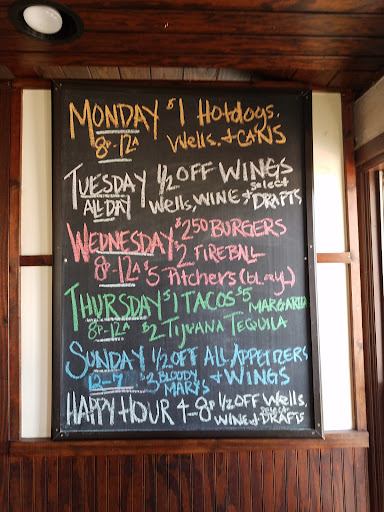 MONDAY $1 Hotdogs,
8P-12A Wells, + CANS
TUESDAY 1/2 OFF WINGS
ALL DAY Wells, WINE + select DRAFTS
WEDNESDAY $250 BURGERS
$2 FIREBALL
8P-12A $5 Pitchers
THURSDAY $1 TACOS $5 MARGARITA
8P-12A $2 TIJUANA TEQUILA
SUNDAY 1/2 OFF ALL APPETIZERS
12-7 $3 BLOODY MARYS + WINGS
HAPPY HOUR 4-8P 1/2 OFF Wells,
WINE + DRAFTS